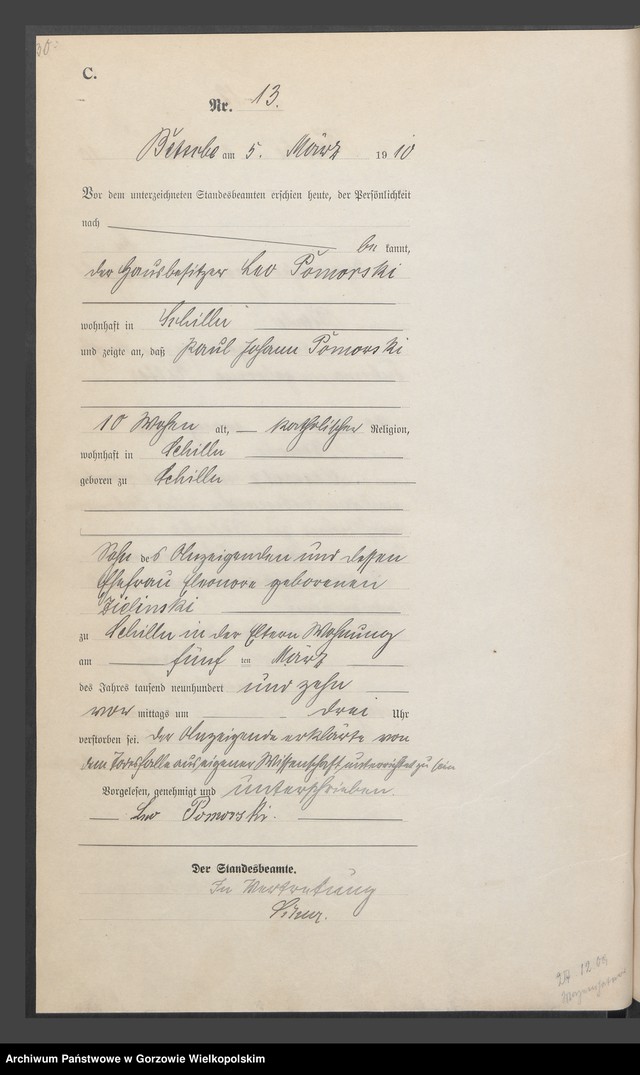 30.
C.
Nr. 13.
Betsche am 5. März 1910
Vor dem unterzeichneten Standesbeamten erschien heute, der Persönlichkeit
nach
be kannt,
der Hausbesitzer Leo Pomorski
wohnhaft in Schilln
und zeigte an, daß Paul Johann Pomorski
10 Wochen alt, katholischer Religion,
wohnhaft in Schilln
geboren zu Schilln
Sohn des Anzeigenden und dessen
Ehefrau Eleonore geborenen
Zielinski
zu Schilln in der Eltern Wohnung
am fünf ten März
des Jahres tausend neunhundert und zehn
vor mittags um drei Uhr
verstorben sei. Der Anzeigende erklärte von
dem Todesfalle aus eigener Wissenschaft unterrichtet zu sein
Vorgelesen, genehmigt und unterschrieben
Leo Pomorski.
Der Standesbeamte.
In Vertretung
12
Archiwum Państwowe w Gorzowie Wielkopolskim